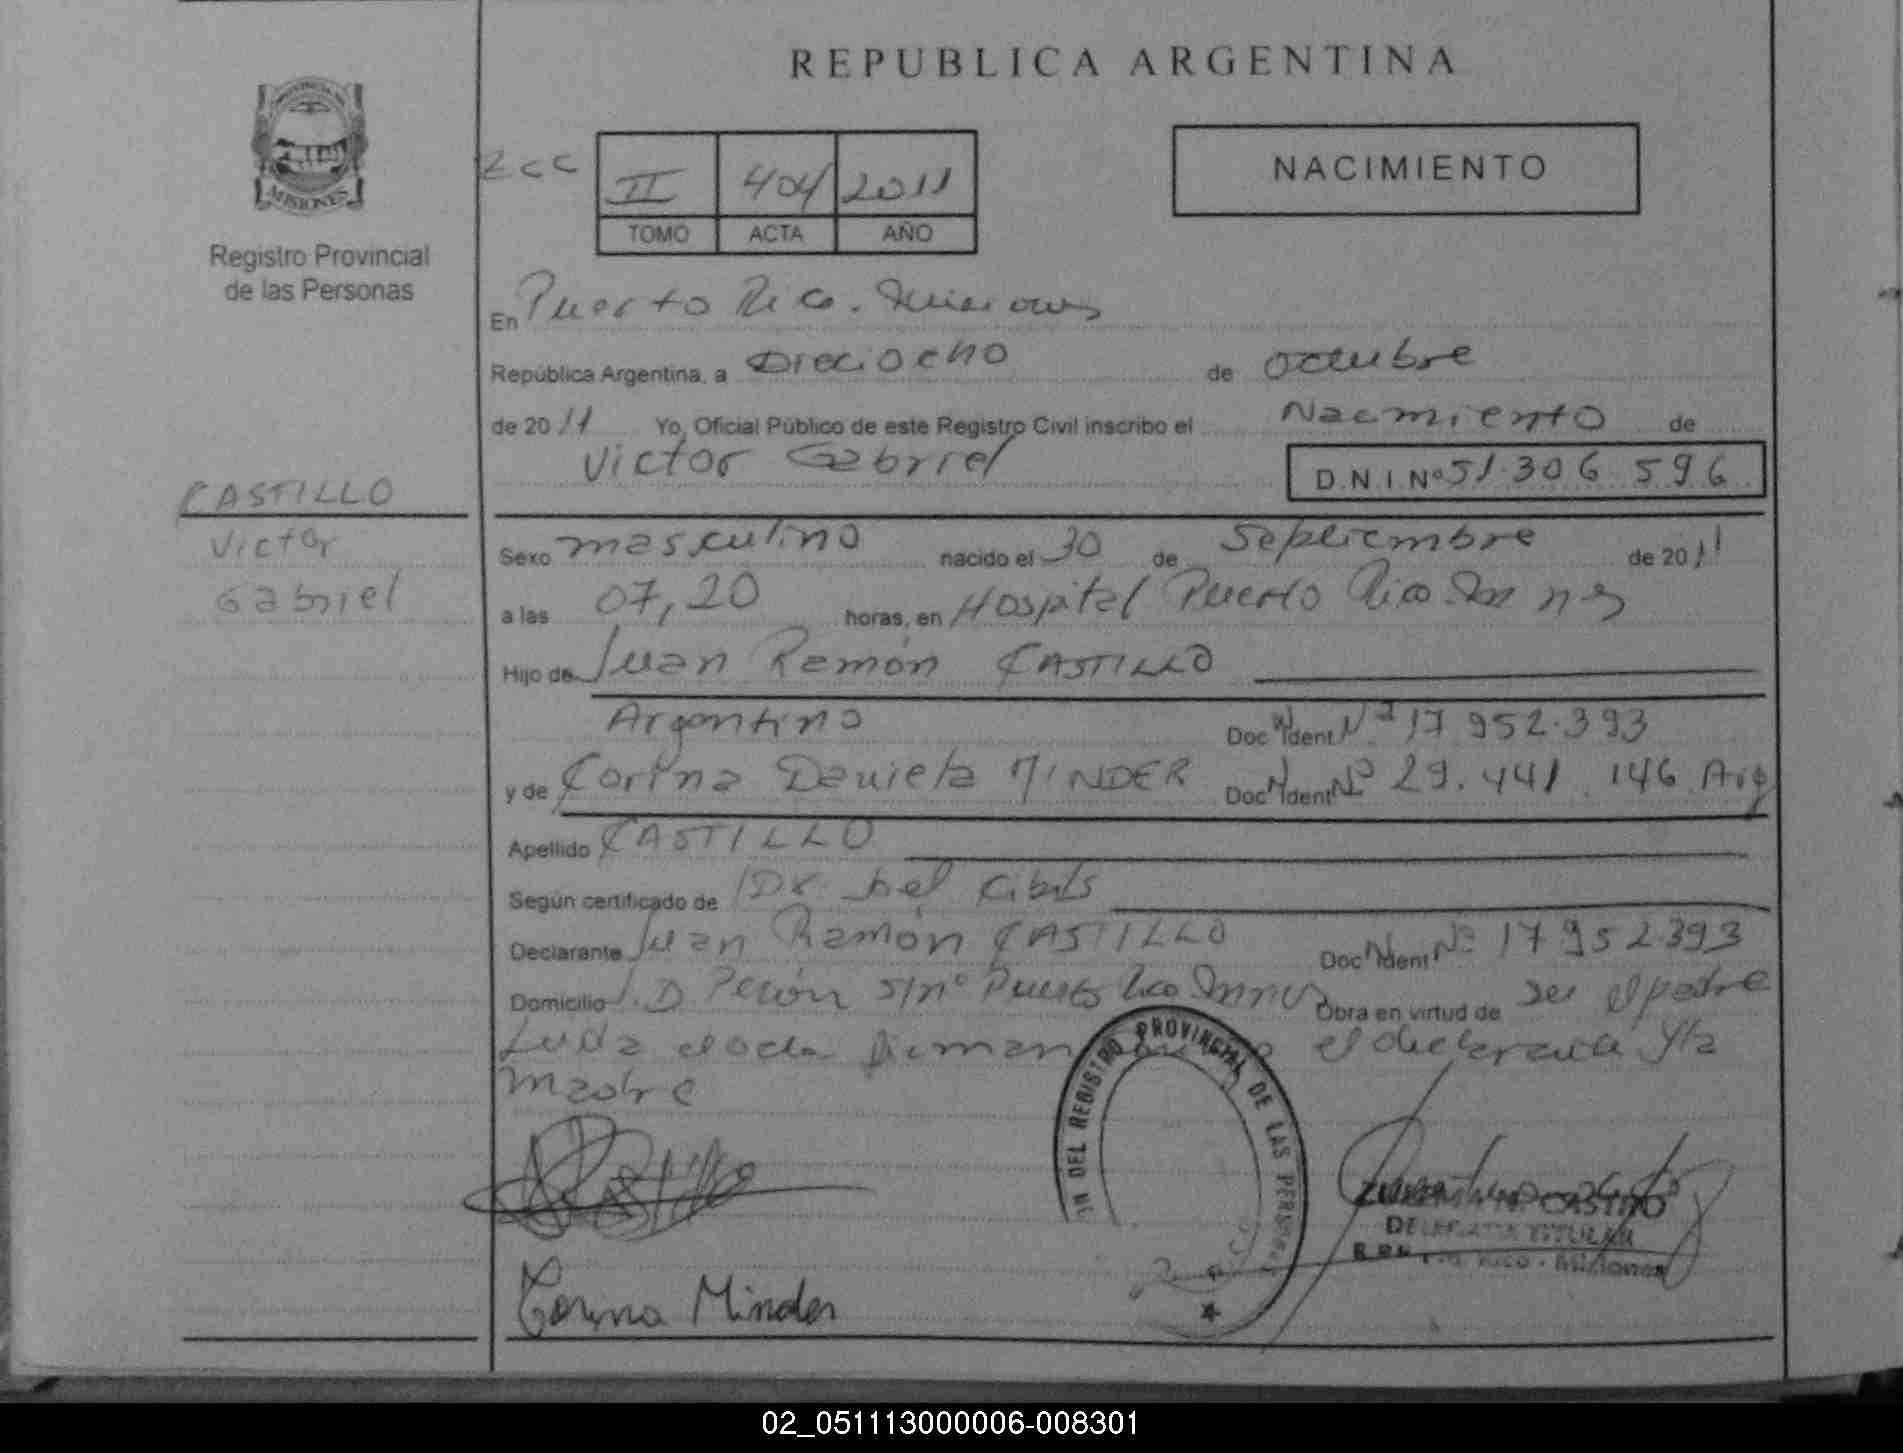 REPUBLICA ARGENTINA
MISIONES
Registro Provincial
de las Personas
II 404 2011
TOMO ACTA AÑO
NACIMIENTO
En Puerto Rico. Misiones
República Argentina, a Dieciocho de octubre
de 2011 Yo, Oficial Público de este Registro Civil inscribo el Nacimiento de
Victor Gabriel D.N.I.Nº 51.306.596
CASTILLO
Victor
Gabriel
Sexo masculino nacido el 30 de Septiembre de 2011
a las 07,20 horas, en Hospital Puerto Rico
Hijo de Juan Ramón CASTILLO
Argentino Doc. Ident Nº 17 952.393
y de Corina Daniela MINDER Doc. Ident Nº 29.441.146 Arg
Apellido CASTILLO
Según certificado de
Declarante Juan Ramón CASTILLO Doc. Ident Nº 17952393
Domicilio J.D Perón s/nº Puerto Rico Obra en virtud de ser el padre
Firman el declarante y la
madre
DEL REGISTRO PROVINCIAL DE LAS PERSONAS
Castillo
CASTRO
DELEGADA TITULAR
Rico - Misiones
Corina Minder
02_051113000006-008301